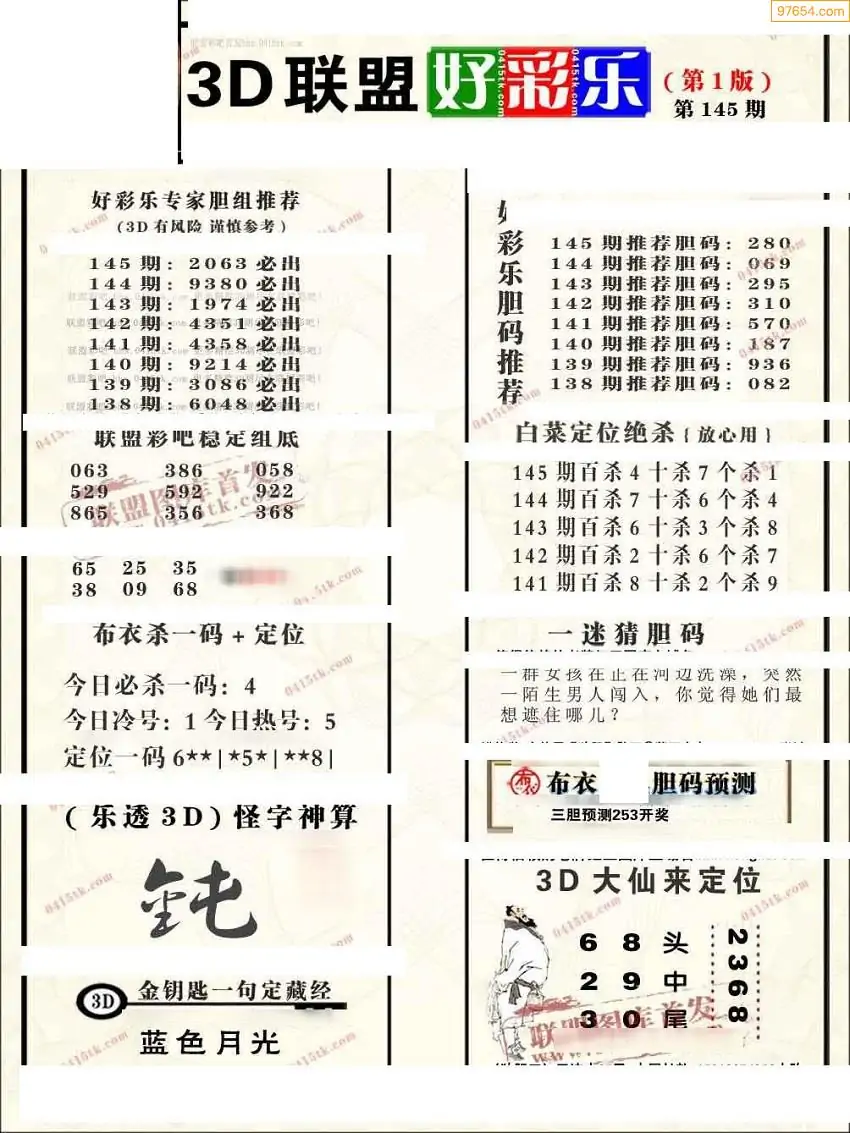 97654.com
3D联盟好彩乐(第1版)
第145期
好彩乐专家胆组推荐
(3D有风险 谨慎参考)
145期: 2063必出
144期: 9380必出
143期: 1974必出
142期: 4351必出
141期: 4358必出
140期: 9214必出
139期: 3086必出
138期: 6048必出
联盟彩吧稳定组底
063 386 058
529 592 922
865 356 368
65 25 35
38 09 68
布衣杀一码+定位
今日必杀一码: 4
今日冷号: 1 今日热号: 5
定位一码6**|*5*|**8|
(乐透3D)怪字神算
3D 金钥匙一句定藏经
蓝色月光
好彩乐胆码推荐
145期推荐胆码: 280
144期推荐胆码: 069
143期推荐胆码: 295
142期推荐胆码: 310
141期推荐胆码: 570
140期推荐胆码: 187
139期推荐胆码: 936
138期推荐胆码: 082
白菜定位绝杀{放心用}
145期百杀4十杀7个杀1
144期百杀7十杀6个杀4
143期百杀6十杀3个杀8
142期百杀2十杀6个杀7
141期百杀8十杀2个杀9
一迷猜胆码
一群女孩在正在河边洗澡，突然
一陌生男人闯入，你觉得她们最
想遮住哪儿?
布衣 胆码预测
三胆预测253开奖
3D大仙来定位
6 8 头
2 9 中
3 0 尾
2368
联盟图库首发
0415tk.com